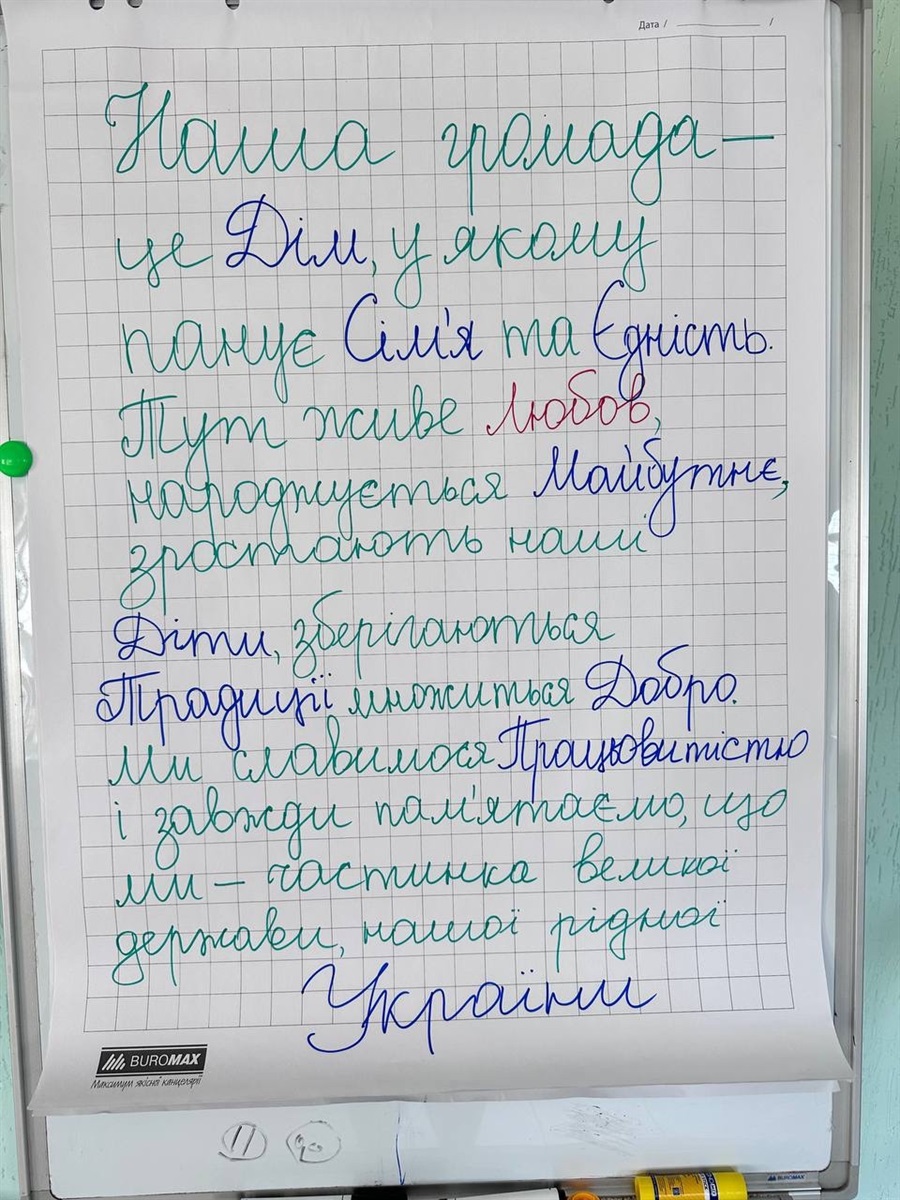 Дата / /
Наша громада —
це Дім, у якому
панує Сім'я та Єдність.
Тут живе любов,
народжується Майбутнє,
зростають наші
Діти, зберігаються
Традиції множиться Добро.
Ми славимося Працьовитістю
і завжди пам'ятаємо, що
ми — частинка великої
держави, нашої рідної
України
BUROMAX
Максимум якісної канцелярії
11
BUROMAX